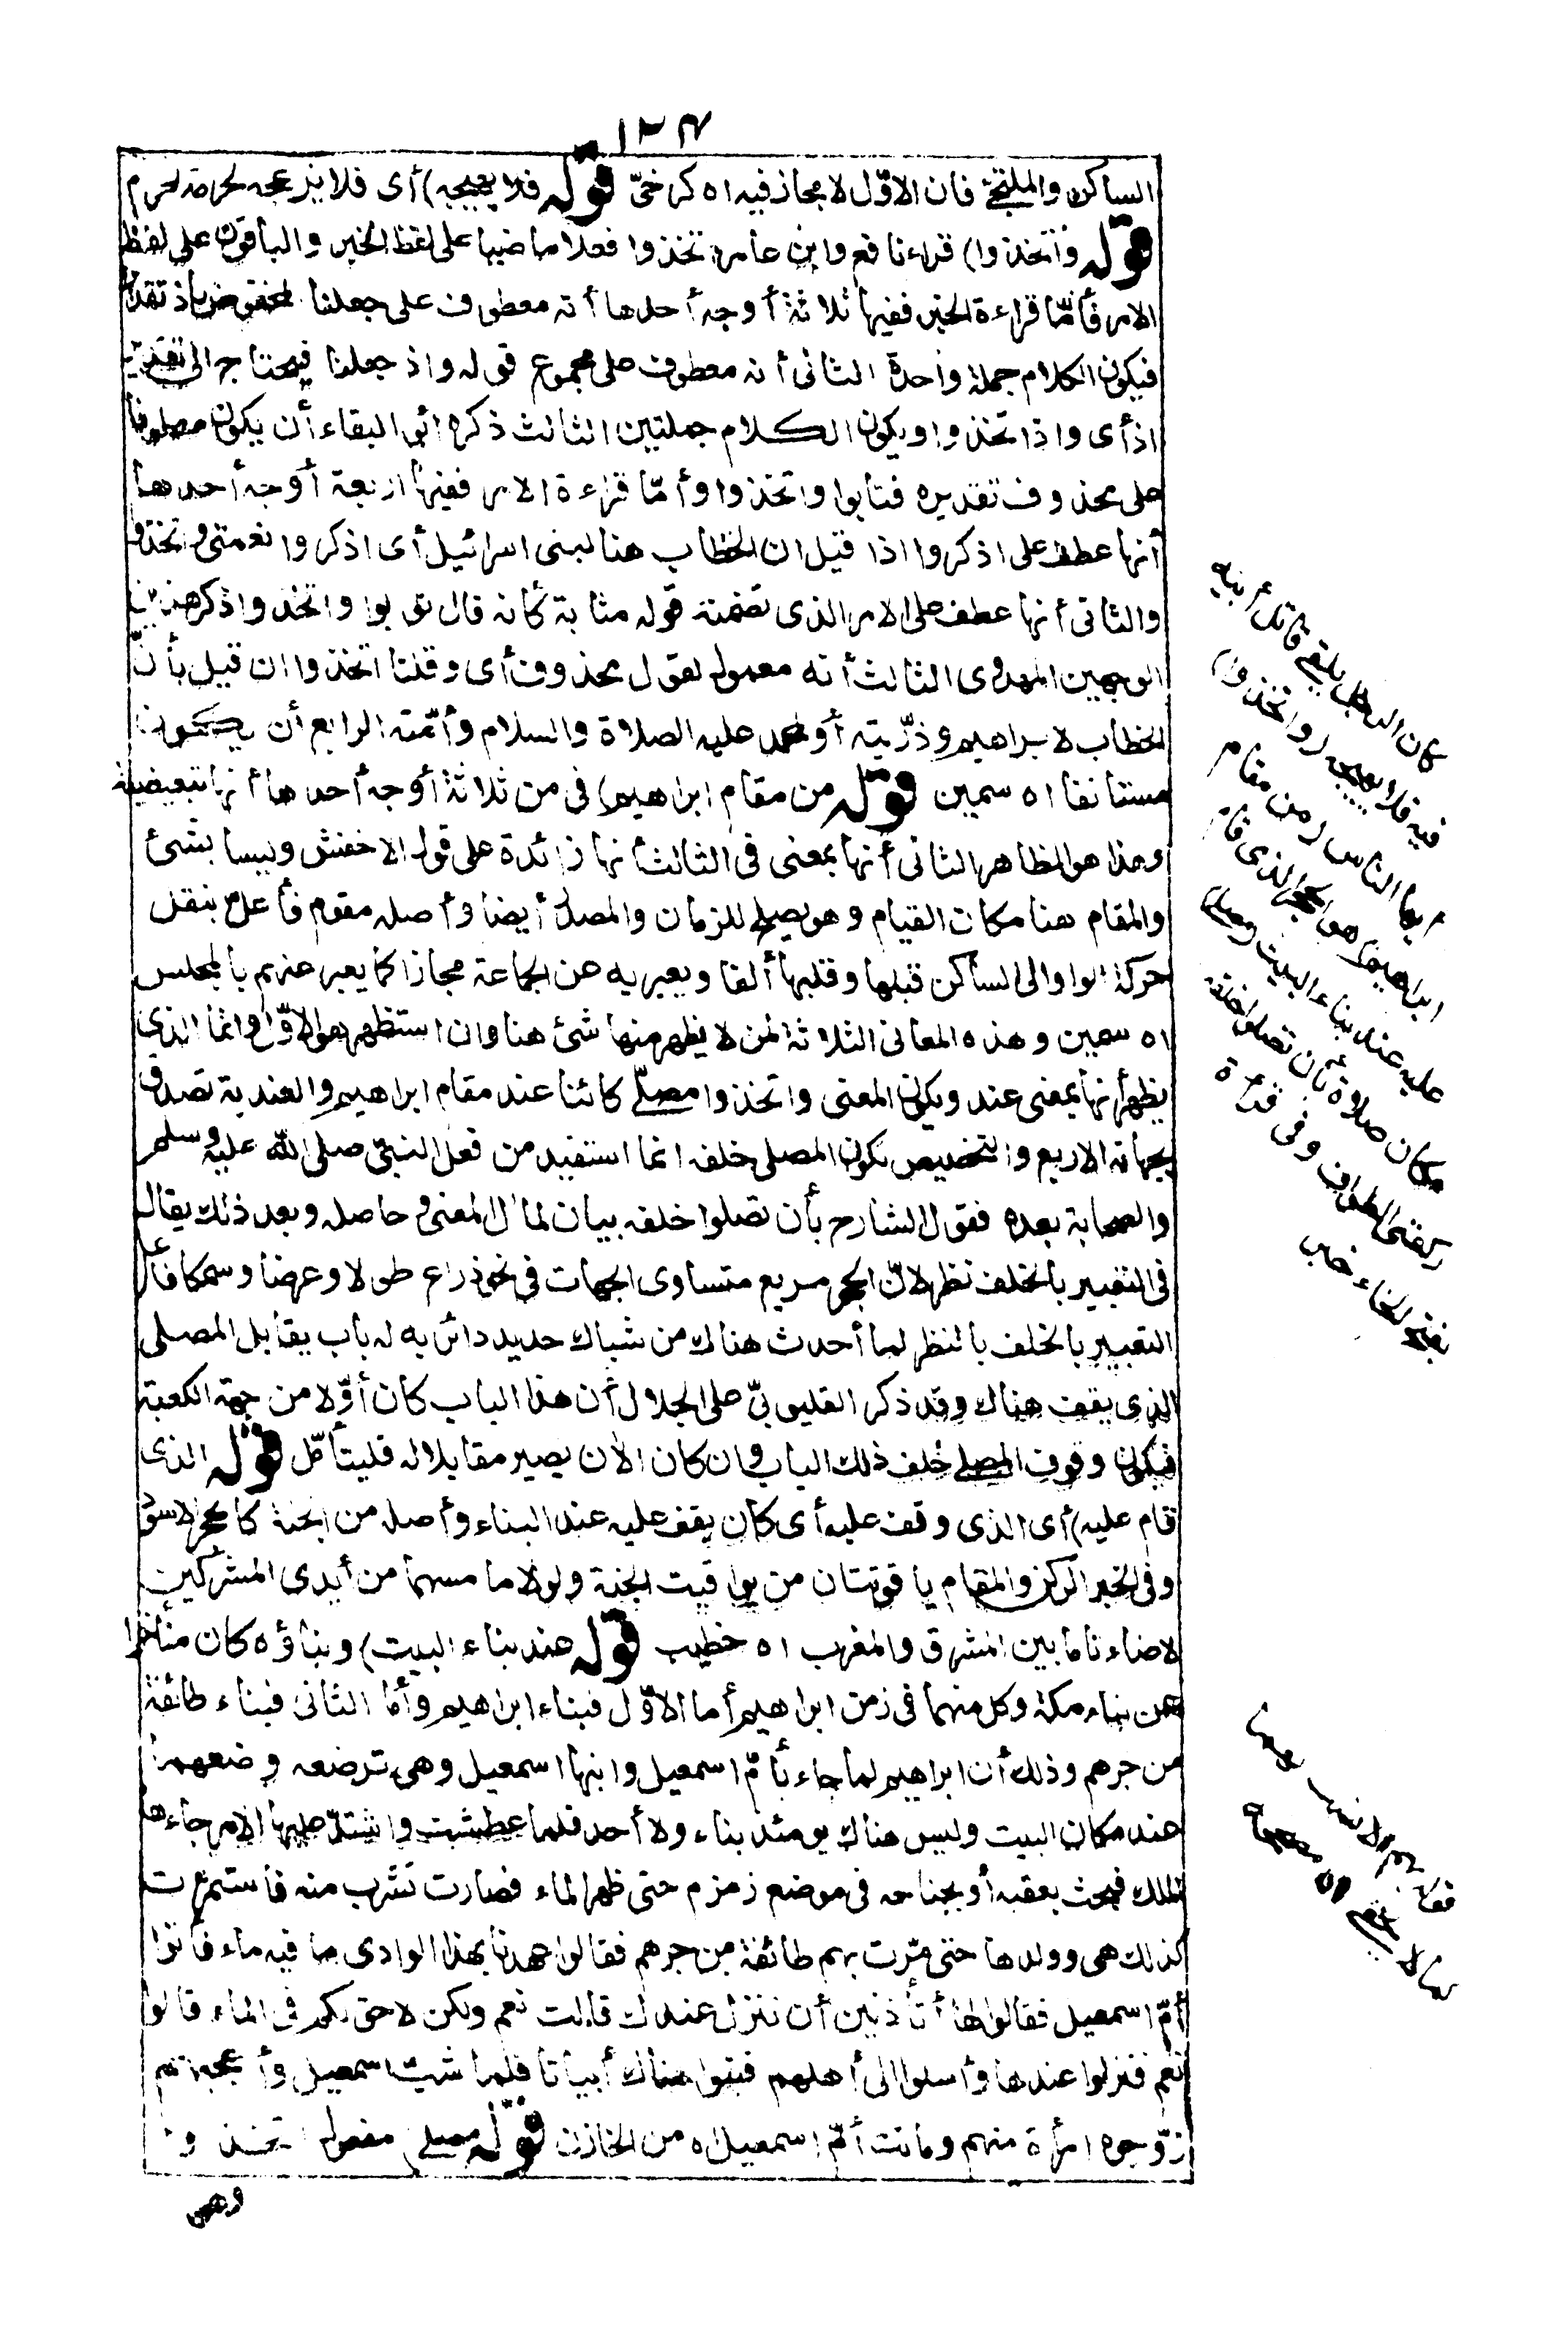 ١٢٣
الساكن والملتجئ فان الاوّل لا مجاز فيه اه كرخىّ قوله فلا يهيجه) أى فلا يزعجه لحرمة الحرم
قوله واتخذوا) قراءنافع وابن عامر اتخذوا فعلا ماضيا على لفظ الخبر والباقون على لفظ
الامر فأمّا قراءة الخبر ففيها ثلاثة أوجه أحدها أنه معطوف على جعلنا المخفوض باذ تقديرا
فيكون الكلام جملة واحدة الثانى أنه معطوف على مجموع قوله واذ جعلنا فيحتاج الى تقدير
اذ أى واذ اتخذوا ويكون الكلام جملتين الثالث ذكره ابى البقاء أن يكون معطوفا
على محذوف تقديره فثابوا واتخذوا وأمّا قراءة الامر ففيها اربعة أوجه أحدها
أنها عطف على اذكروا اذا قيل ان الخطاب هنا لبنى اسرائيل أى اذكروا نعمتى واتخذوا
والثانى أنها عطف على الامر الذى تضمنة قوله مثابة كأنه قال ثوبوا واتخذوا ذكر هذين
الوجهين المهدوى الثالث أنه معمول لقول محذوف أى وقلنا اتخذوا ان قيل بأنّ
الخطاب لابراهيم وذرّيته أو لمحمد عليه الصلاة والسلام وأمّته الرابع أن يكون
مستأنفا اه سمين قوله من مقام ابراهيم) فى من ثلاثة أوجه أحدها أنها تبعيضية
وهذا هو الظاهر الثانى أنها بمعنى فى الثالث أنها زائدة على قول الاخفش وليسا بشئ
والمقام هنا مكان القيام وهو يصلح للزمان والمصدر أيضا وأصله مقوم فأعل بنقل
حركة الواو الى الساكن قبلها وقلبها ألفا ويعبر به عن الجماعة مجازا كما يعبر عنهم بالمجلس
اه سمين وهذه المعانى الثلاثة لمن لا يظهر منها شئ هنا وان استظهر هو الاوّل وانما الذى
يظهر أنها بمعنى عند ويكون المعنى واتخذوا مصلّى كائنا عند مقام ابراهيم والعندية تصدق
بجهاته الاربع والتخصيص بكون المصلى خلفه انما استفيد من فعل النبىّ صلى الله عليه وسلم
والصحابة بعده فقول الشارح بأن تصلوا خلفه بيان لمآل المعنى وحاصله وبعد ذلك يقال
فى التعبير بالخلف نظر لانّ الحجر مربع متساوى الجهات فى نحو ذراع طولا وعرضا وسمكا فلعل
التعبير بالخلف بالنظر لما أحدث هناك من شباك حديد دائر به له باب يقابل المصلى
الذى يقف هناك وقد ذكر القليوبىّ على الجلال أن هذا الباب كان أوّلا من جهة الكعبة
فيكون وقوف المصلى خلف ذلك الباب وان كان الآن يصير مقابلا له فليتأمّل قوله الذى
قام عليه) أى الذى وقف عليه أى كان يقف عليه عند البناء وأصله من الجنة كالحجر الاسود
وفى الخبر الركن والمقام ياقوتتان من يواقيت الجنة ولولا ما مسهما من أيدى المشركين
لاضاءتا ما بين المشرق والمغرب اه خطيب قوله عند بناء البيت) وبناؤه كان متأخرا
عن بناء مكة وكل منهما فى زمن ابراهيم أما الاوّل فبناء ابراهيم وأما الثانى فبناء طائفة
من جرهم وذلك أن ابراهيم لما جاء بأمّ اسمعيل وابنها اسمعيل وهى ترضعه وضعهما
عند مكان البيت وليس هناك يومئذ بناء ولا أحد فلما عطشت واشتدّ عليها الامر جاءها
الملك فبحث بعقبه أو بجناحه فى موضع زمزم حتى ظهر الماء فصارت تشرب منه فاستمرّت
كذلك هى وولدها حتى مرّت بهم طائفة من جرهم فقالوا عهدنا بهذا الوادى ما فيه ماء فأتوا
أمّ اسمعيل فقالوا لها أتأذنين أن ننزل عندك قالت نعم ولكن لا حق لكم فى الماء قالوا
نعم فنزلوا عندها وأرسلوا الى أهلهم فبنوا هناك أبياتا فلما شبّ اسمعيل وأعجبهم
زوّجوه امرأة منهم وماتت أمّ اسمعيل اه من الخازن قوله مصلى) مفعول اتخذوا
وهى
كان الرجل يلقى قاتل أبيه
فيه فلا يهيجه (واتخذوا)
ايها الناس (من مقام
ابراهيم) هو الحجر الذى قام
عليه عند بناء البيت (مصلى)
مكان صلاة بأن تصلوا خلفه
ركعتى الطواف وفى قراءة
بفتح الخاء خبر